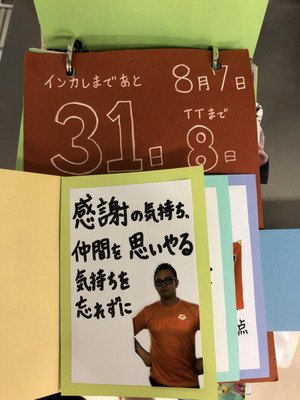 インカレまであと
31日
8月7日
TTまで
8日
感謝の気持ち、
仲間を思いやる
気持ちを
忘れずに
点